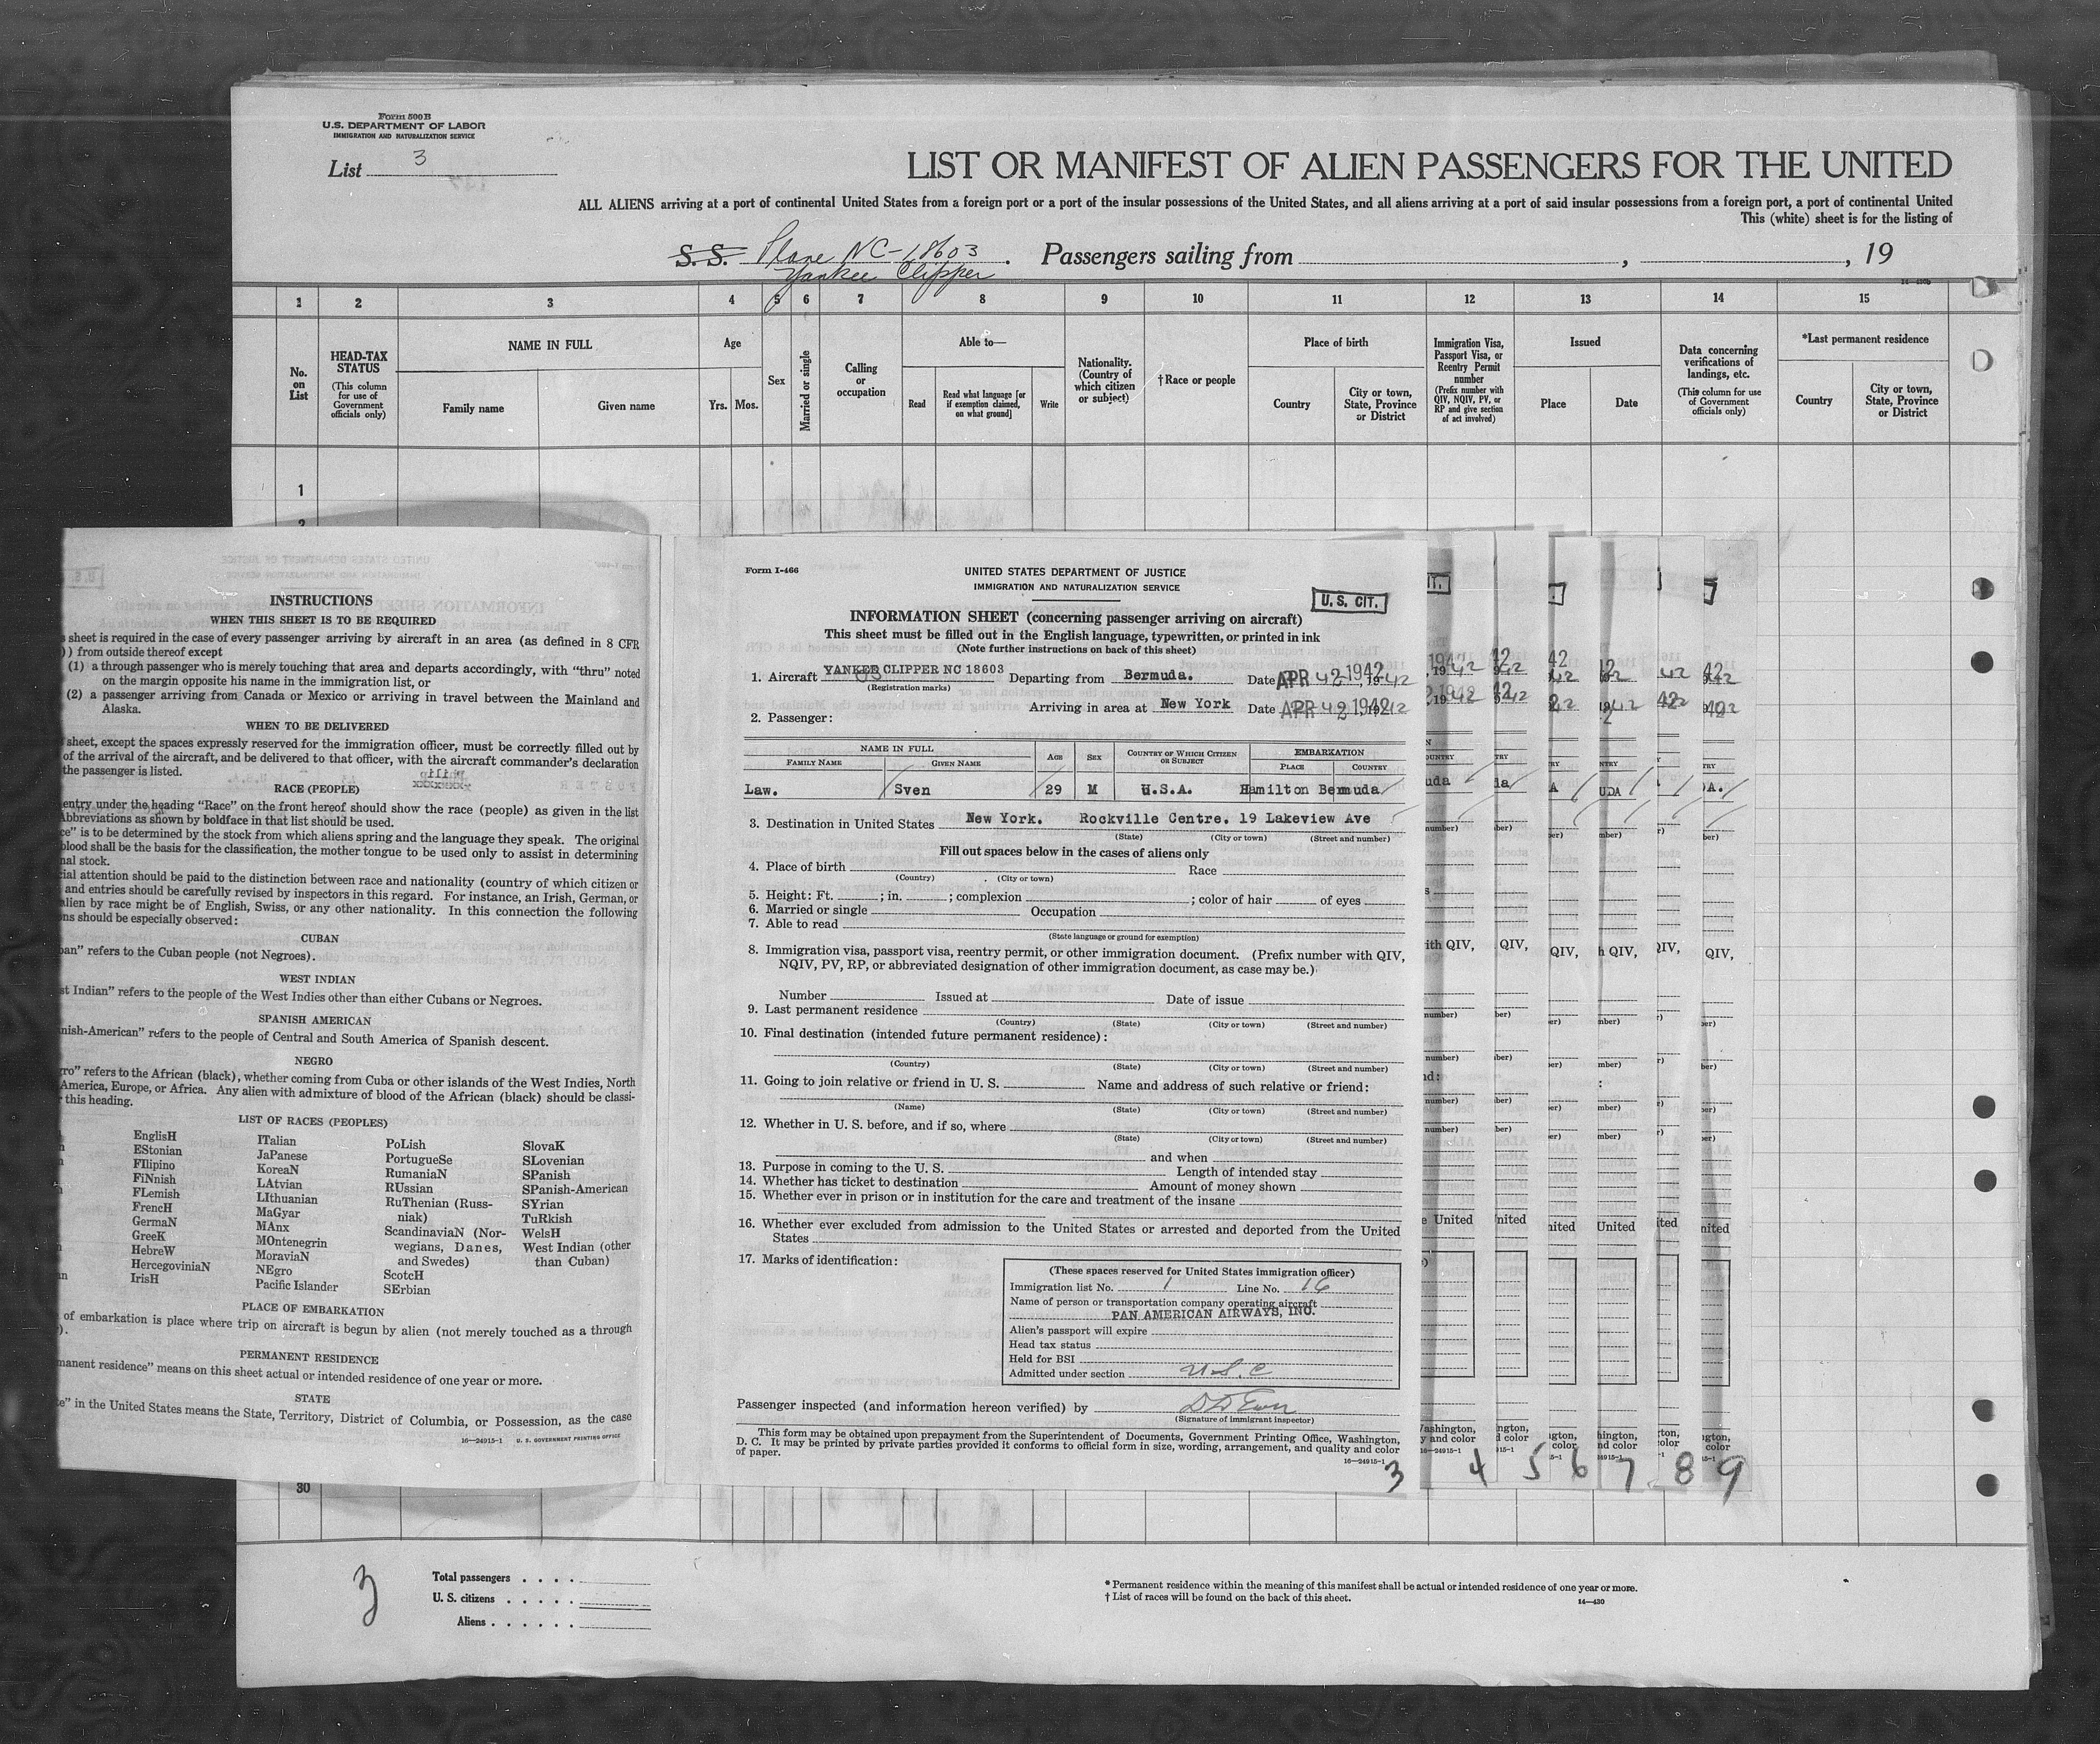 Form 500B
U.S. DEPARTMENT OF LABOR
IMMIGRATION AND NATURALIZATION SERVICE
List 3
LIST OR MANIFEST OF ALIEN PASSENGERS FOR THE UNITED
ALL ALIENS arriving at a port of continental United States from a foreign port or a port of the insular possessions of the United States, and all aliens arriving at a port of said insular possessions from a foreign port, a port of continental United
This (white) sheet is for the listing of
S. S. Plane NC-18603 . Passengers sailing from , , 19
Yankee Clipper
14—430b
1 2 3 4 5 6 7 8 9 10 11 12 13 14 15
No. on List
HEAD-TAX STATUS
(This column for use of Government officials only)
NAME IN FULL
Family name
Given name
Age
Yrs. Mos.
Sex
Married or single
Calling or occupation
Able to—
Read
Read what language [or if exemption claimed, on what ground]
Write
Nationality. (Country of which citizen or subject)
† Race or people
Place of birth
Country
City or town, State, Province or District
Immigration Visa, Passport Visa, or Reentry Permit number
(Prefix number with QIV, NQIV, PV, or RP and give section of act involved)
Issued
Place
Date
Data concerning verifications of landings, etc.
(This column for use of Government officials only)
*Last permanent residence
Country
City or town, State, Province or District
1
2
INSTRUCTIONS
WHEN THIS SHEET IS TO BE REQUIRED
sheet is required in the case of every passenger arriving by aircraft in an area (as defined in 8 CFR
) from outside thereof except
(1) a through passenger who is merely touching that area and departs accordingly, with "thru" noted
on the margin opposite his name in the immigration list, or
(2) a passenger arriving from Canada or Mexico or arriving in travel between the Mainland and
Alaska.
WHEN TO BE DELIVERED
sheet, except the spaces expressly reserved for the immigration officer, must be correctly filled out by
of the arrival of the aircraft, and be delivered to that officer, with the aircraft commander's declaration
the passenger is listed.
RACE (PEOPLE)
entry under the heading "Race" on the front hereof should show the race (people) as given in the list
Abbreviations as shown by boldface in that list should be used.
ce" is to be determined by the stock from which aliens spring and the language they speak. The original
blood shall be the basis for the classification, the mother tongue to be used only to assist in determining
nal stock.
cial attention should be paid to the distinction between race and nationality (country of which citizen or
and entries should be carefully revised by inspectors in this regard. For instance, an Irish, German, or
alien by race might be of English, Swiss, or any other nationality. In this connection the following
ns should be especially observed:
CUBAN
ban" refers to the Cuban people (not Negroes).
WEST INDIAN
st Indian" refers to the people of the West Indies other than either Cubans or Negroes.
SPANISH AMERICAN
nish-American" refers to the people of Central and South America of Spanish descent.
NEGRO
gro" refers to the African (black), whether coming from Cuba or other islands of the West Indies, North
America, Europe, or Africa. Any alien with admixture of blood of the African (black) should be classi-
this heading.
LIST OF RACES (PEOPLES)
EnglisH
EStonian
FIlipino
FiNnish
FLemish
FrencH
GermaN
GreeK
HebreW
HercegoviniaN
IrisH
ITalian
JaPanese
KoreaN
LAtvian
LIthuanian
MaGyar
MAnx
MOntenegrin
MoraviaN
NEgro
Pacific Islander
PoLish
PortugueSe
RumaniaN
RUssian
RuThenian (Russ-
niak)
ScandinaviaN (Nor-
wegians, Danes,
and Swedes)
ScotcH
SErbian
SlovaK
SLovenian
SPanish
SPanish-American
SYrian
TuRkish
WelsH
West Indian (other
than Cuban)
PLACE OF EMBARKATION
of embarkation is place where trip on aircraft is begun by alien (not merely touched as a through
).
PERMANENT RESIDENCE
manent residence" means on this sheet actual or intended residence of one year or more.
STATE
te" in the United States means the State, Territory, District of Columbia, or Possession, as the case
16—24915-1 U. S. GOVERNMENT PRINTING OFFICE
Form I-466
UNITED STATES DEPARTMENT OF JUSTICE
IMMIGRATION AND NATURALIZATION SERVICE
U. S. CIT.
INFORMATION SHEET (concerning passenger arriving on aircraft)
This sheet must be filled out in the English language, typewritten, or printed in ink
(Note further instructions on back of this sheet)
1. Aircraft YANKEE CLIPPER NC 18603 Departing from Bermuda. Date APR 2 1942, 1942
(Registration marks)
Arriving in area at New York Date APR 2 1942, 1942
2. Passenger:
NAME IN FULL
FAMILY NAME GIVEN NAME
AGE SEX COUNTRY OF WHICH CITIZEN OR SUBJECT
EMBARKATION
PLACE COUNTRY
Law. Sven 29 M U.S.A. Hamilton Bermuda
3. Destination in United States New York. Rockville Centre. 19 Lakeview Ave
(State) (City or town) (Street and number)
Fill out spaces below in the cases of aliens only
4. Place of birth Race
(Country) (City or town)
5. Height: Ft. ; in. ; complexion ; color of hair of eyes
6. Married or single Occupation
7. Able to read
(State language or ground for exemption)
8. Immigration visa, passport visa, reentry permit, or other immigration document. (Prefix number with QIV,
NQIV, PV, RP, or abbreviated designation of other immigration document, as case may be.)
Number Issued at Date of issue
9. Last permanent residence
(Country) (State) (City or town) (Street and number)
10. Final destination (intended future permanent residence):
(Country) (State) (City or town) (Street and number)
11. Going to join relative or friend in U. S. Name and address of such relative or friend:
(Name) (State) (City or town) (Street and number)
12. Whether in U. S. before, and if so, where
(State) (City or town) (Street and number)
and when
13. Purpose in coming to the U. S. Length of intended stay
14. Whether has ticket to destination Amount of money shown
15. Whether ever in prison or in institution for the care and treatment of the insane
16. Whether ever excluded from admission to the United States or arrested and deported from the United
States
17. Marks of identification:
(These spaces reserved for United States immigration officer)
Immigration list No. 1 Line No. 16
Name of person or transportation company operating aircraft
PAN AMERICAN AIRWAYS, INC.
Alien's passport will expire
Head tax status
Held for BSI
Admitted under section U.S.C
Passenger inspected (and information hereon verified) by
(Signature of immigrant inspector)
This form may be obtained upon prepayment from the Superintendent of Documents, Government Printing Office, Washington,
D. C. It may be printed by private parties provided it conforms to official form in size, wording, arrangement, and quality and color
of paper.
16—24915-1
3 4 5 6 7 8 9
30
3
Total passengers . . . .
U. S. citizens . . . . .
Aliens . . . . . .
* Permanent residence within the meaning of this manifest shall be actual or intended residence of one year or more.
† List of races will be found on the back of this sheet.
14—430